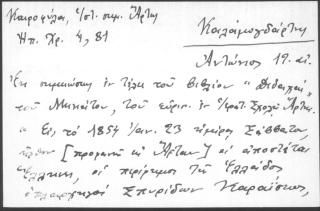 Καιροφύλα, ἱστ. σημ. Ἄρτης
Ἠπ. Χρ. 4, 81
Καλαμογδάρτης
Ἀντώνιος 19. αἰ.
Ἐκ σημειώσεως ἐν τέλει τοῦ βιβλίου "Διδαχαὶ"
τοῦ Μηνιάτου, τοῦ εὑρισκ. ἐν Σχολῇ Ἄρτης.
" Εἰς τὸ 1854 23 ἡμέρᾳ Σάββατον
ἦλθον [προφανῶς εἰς Ἄρταν] οἱ ἀποστάται
Ἕλληνες, οἱ περίφημοι τῆς Ἑλλάδος
ὁπλαρχηγοὶ Σπυρίδων Καραΐσκος,